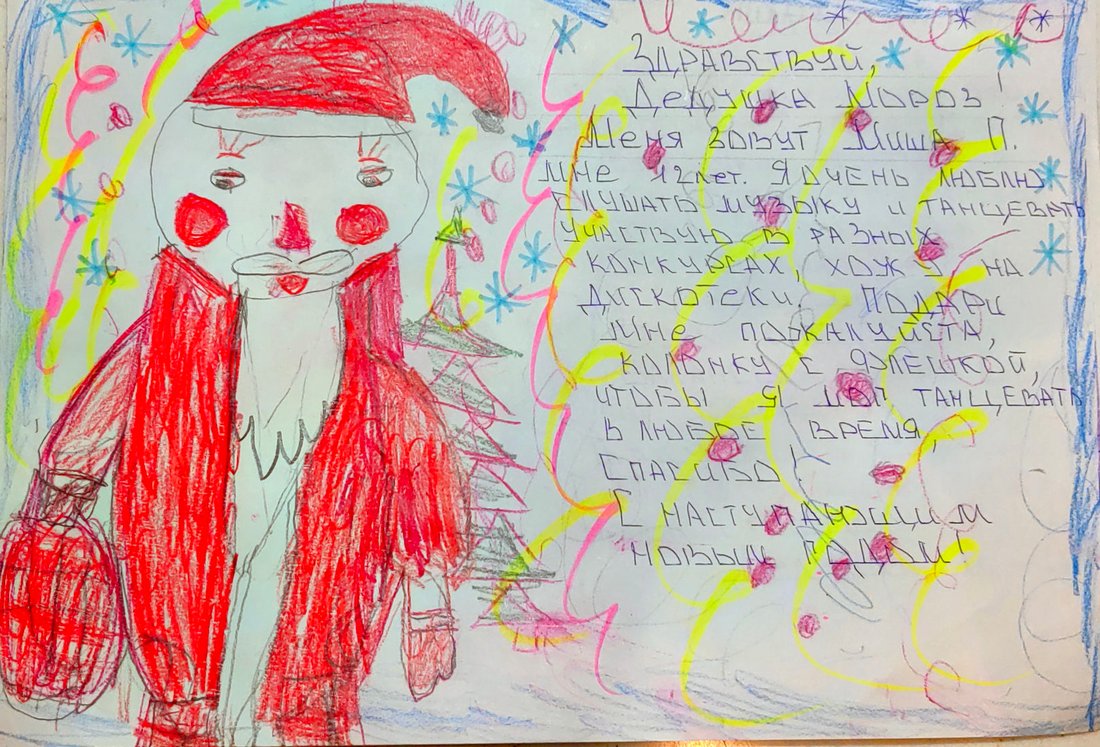 Здравствуй,
Дедушка Мороз
Меня зовут Миша П.
Мне 12 лет. Я очень люблю
слушать музыку и танцевать
участвую в разных
конкурсах, хожу на
дискотеки. Подари
мне пожалуйста,
колонку с флешкой,
чтобы я мог танцевать
в любое время,
Спасибо!
С наступающим
новым годом!